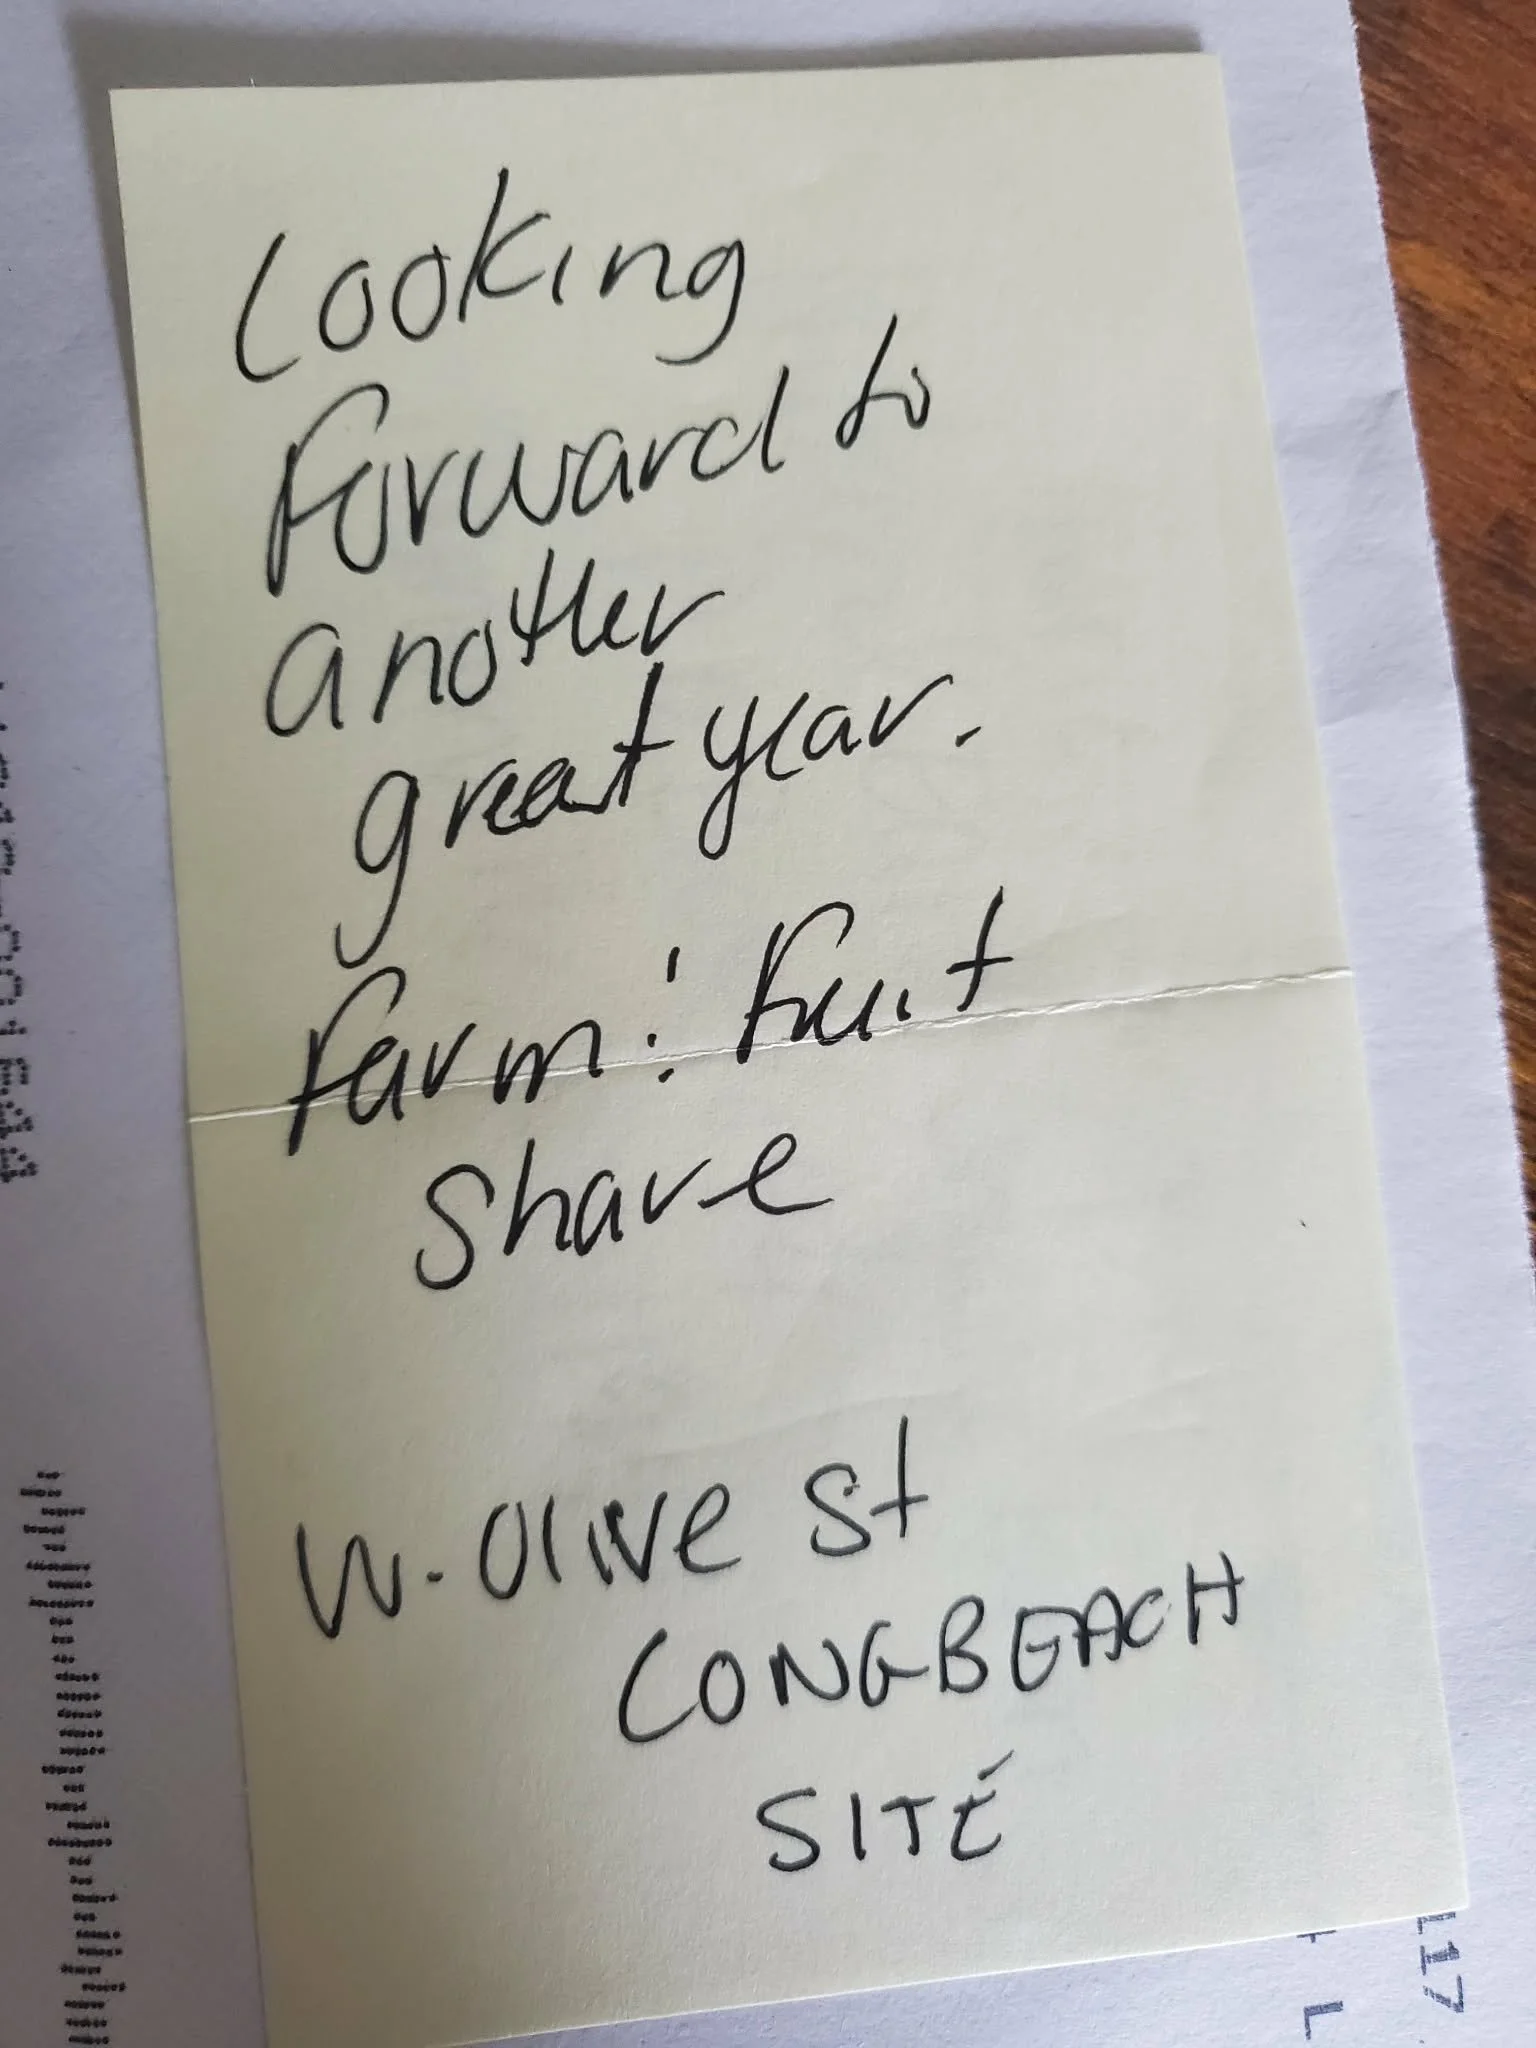 Looking
forward to
another
great year.
Farm: Fruit
Share
W. Olive St
LONGBEACH
SITE
117
L